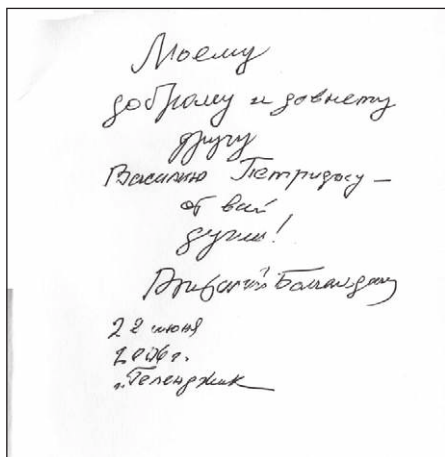 Моему
доброму и давнему
другу
Василию Петридису –
от всей
души!
22 июня
г. Геленджик